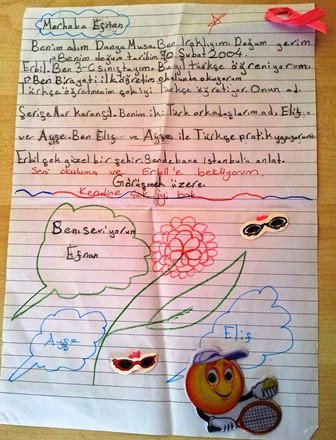 Merhaba Eşnan
Benim adım Danya Musa. Ben Iraklıyım. Doğum yerim
Benim doğum tarihim 20 Şubat 2004.
Erbil. Ben 3-C sınıftayım. Bu yıl türkçe öğreniyorum.
Ben Birayati ilk öğretim okulunda okuyorum
Türkçe öğretmenim çok iyi Türkçe öğretiyor. Onun adı
Şerişe Nur karangil. Benim iki Türk arkadaşlarım adı Elif
ve Ayşe. Ben Elif ve Ayşe ile Türkçe pratik yapıyorum
Erbil çok güzel bir şehir. Sende bana İstanbul'u anlat.
Seni okuluma ve Erbil'e bekliyorum.
Görüşmek üzere.
Kendine çok iyi bak
Beni seviyorum
Eşnan
Ayşe
Elif